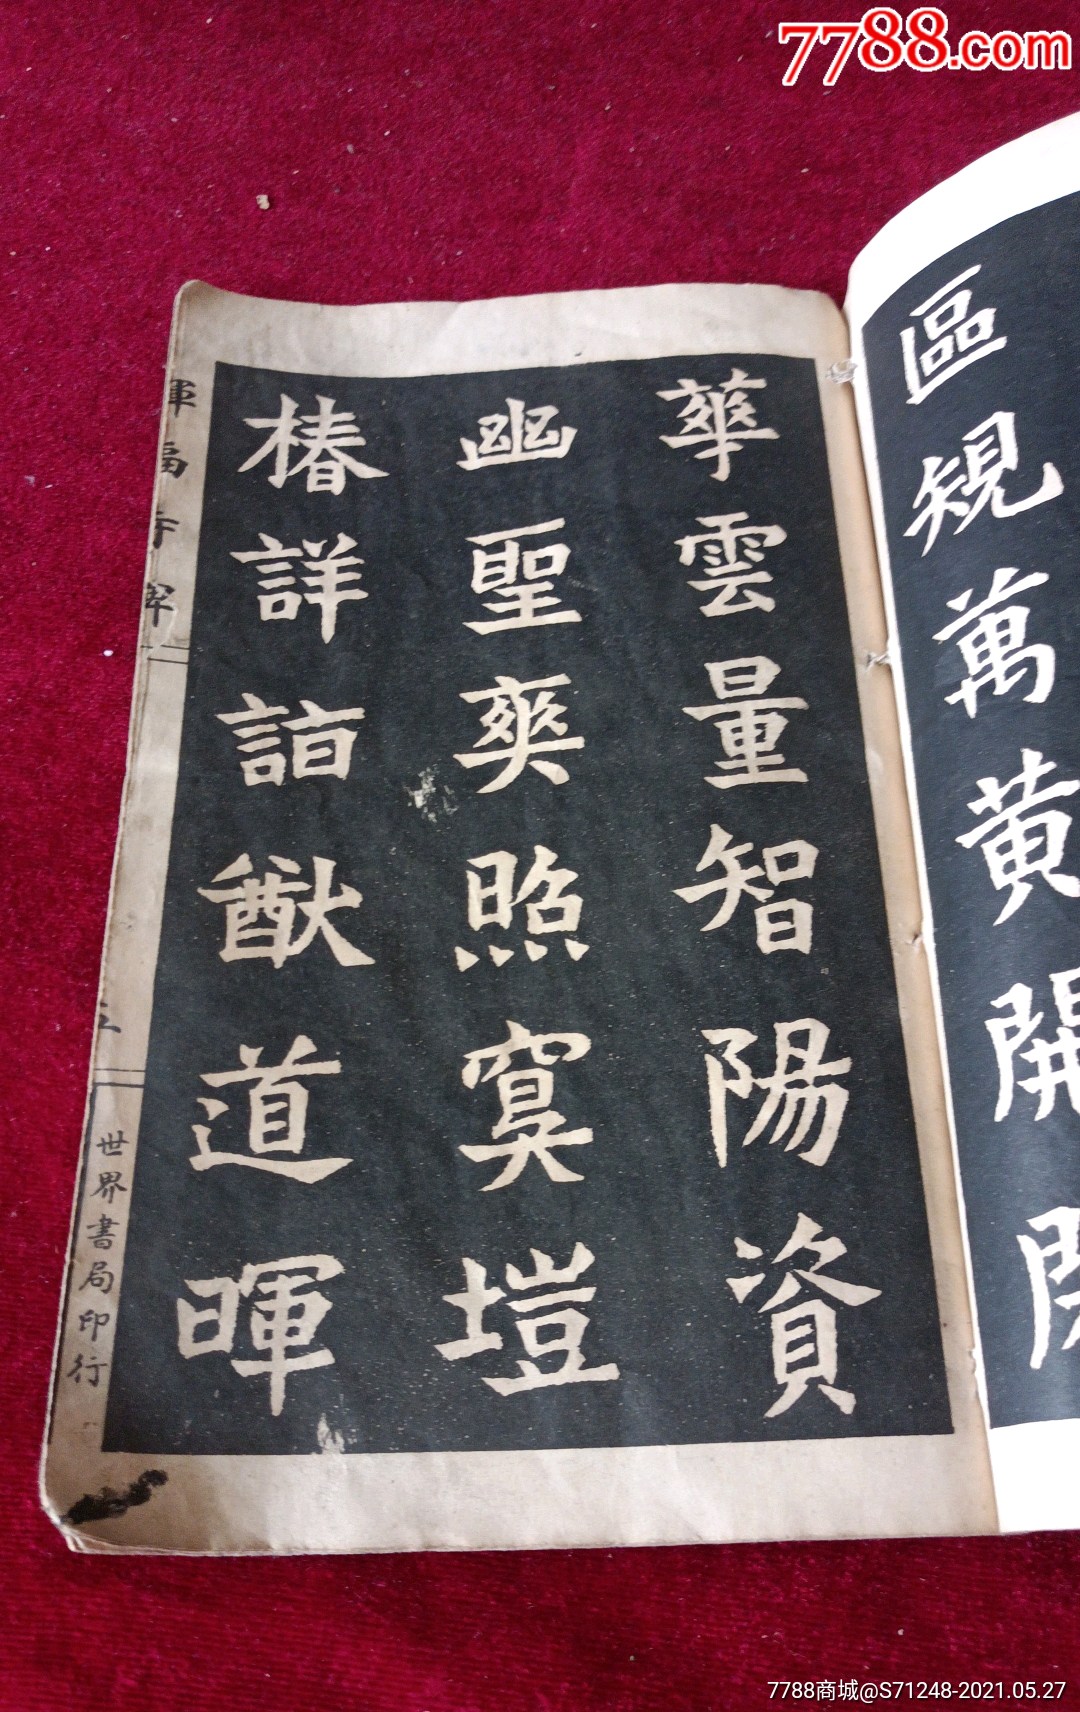 7788.com
區規萬黃開
華雲量智陽資
幽聖爽照寞塏
椿詳諮猷道暉
暉福寺碑
三
世界書局印行
7788商城@S71248-2021.05.27